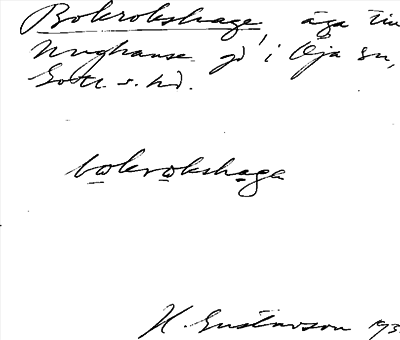 Bokrokshage, äga till
Nughanse gd i Öja sn,
Gotl. s. hd.
bokrokshaga
H. Gustavson 193